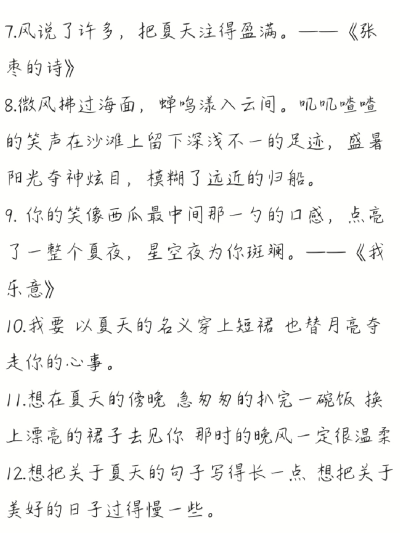 7.风说了许多，把夏天注得盈满。——《张
枣的诗》
8.微风拂过海面，蝉鸣漾入云间。叽叽喳喳
的笑声在沙滩上留下深浅不一的足迹，盛暑
阳光夺神炫目，模糊了远近的归船。
9. 你的笑像西瓜最中间那一勺的口感，点亮
了一整个夏夜，星空夜为你斑斓。——《我
乐意》
10.我要 以夏天的名义穿上短裙 也替月亮夺
走你的心事。
11.想在夏天的傍晚 急匆匆的扒完一碗饭 换
上漂亮的裙子去见你 那时的晚风一定很温柔
12.想把关于夏天的句子写得长一点 想把关于
美好的日子过得慢一些。